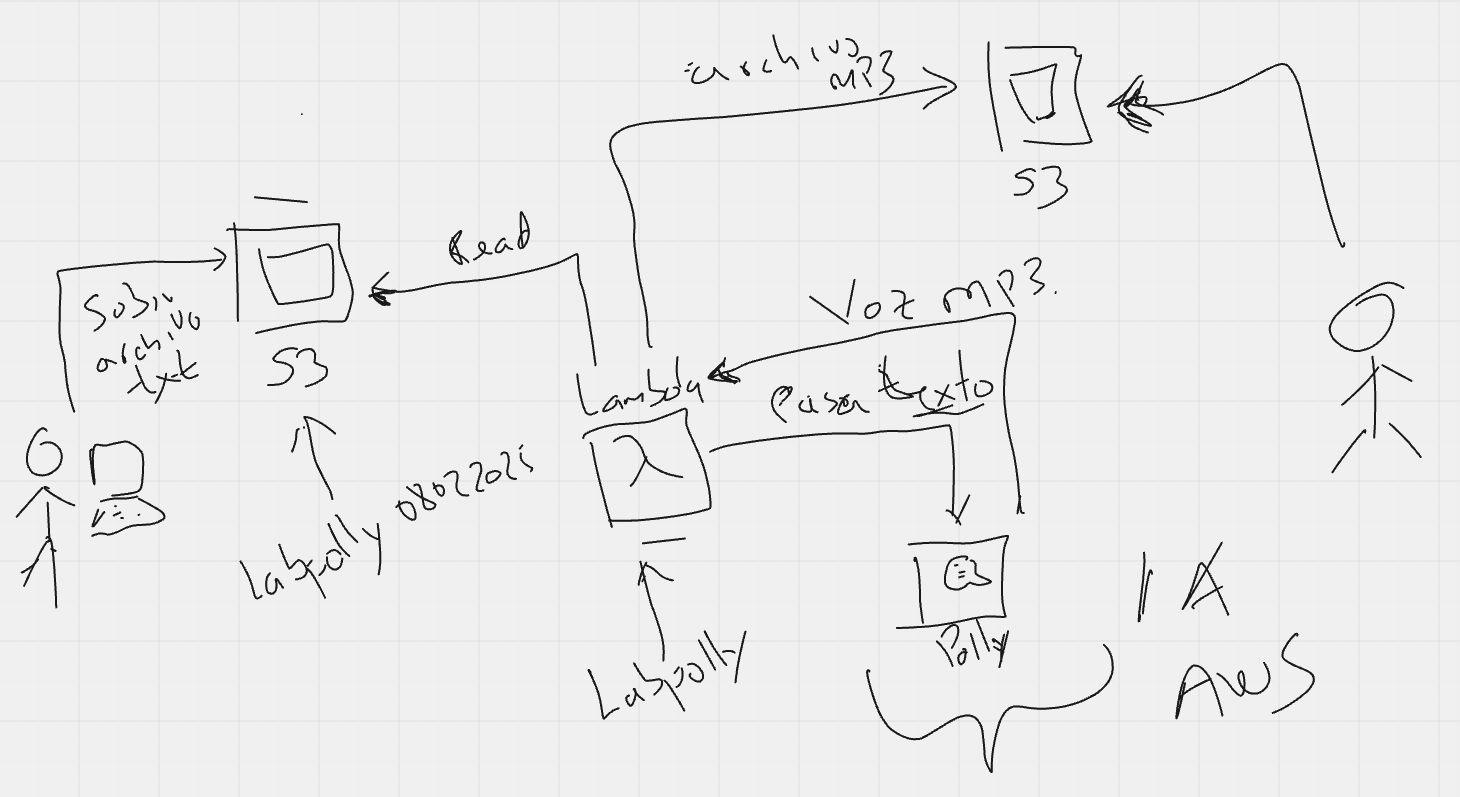 archivo
MP3
S3
Read
Subir
archivo
txt
S3
Voz MP3.
Lambda
pasa texto
λ
Labpolly 08022025
Polly
IA
AWS
Labpolly